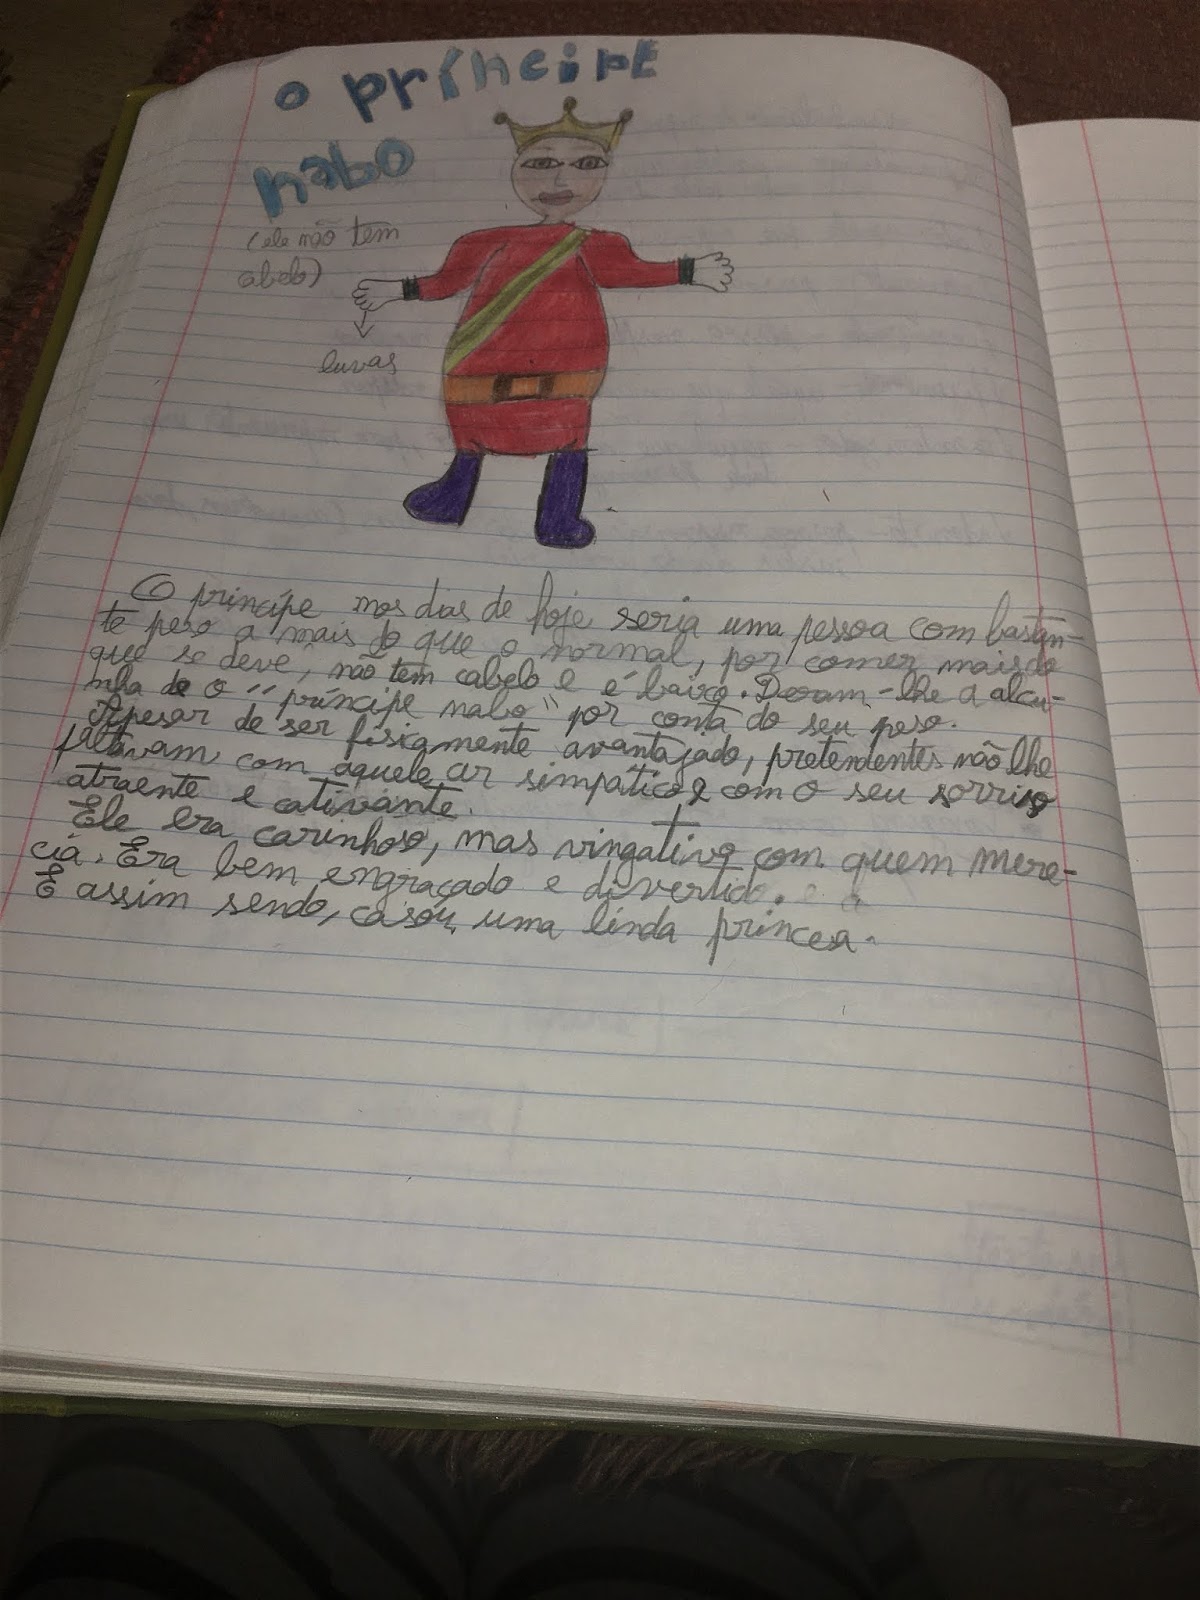 o príncipe
nabo
(ele não tem
cabelo)
luvas
O príncipe nos dias de hoje seria uma pessoa com bastan-
te peso a mais do que o normal, por comer mais do
que se deve, não tem cabelo e é baixo. Deram-lhe a alcu-
nha de o "príncipe nabo" por conta do seu peso.
Apesar de ser fisicamente avantajado, pretendentes não lhe
faltavam com aquele ar simpático e com o seu sorriso
atraente e cativante.
Ele era carinhoso, mas vingativo com quem mere-
cia. Era bem engraçado e divertido.
E assim sendo, casou uma linda princesa.